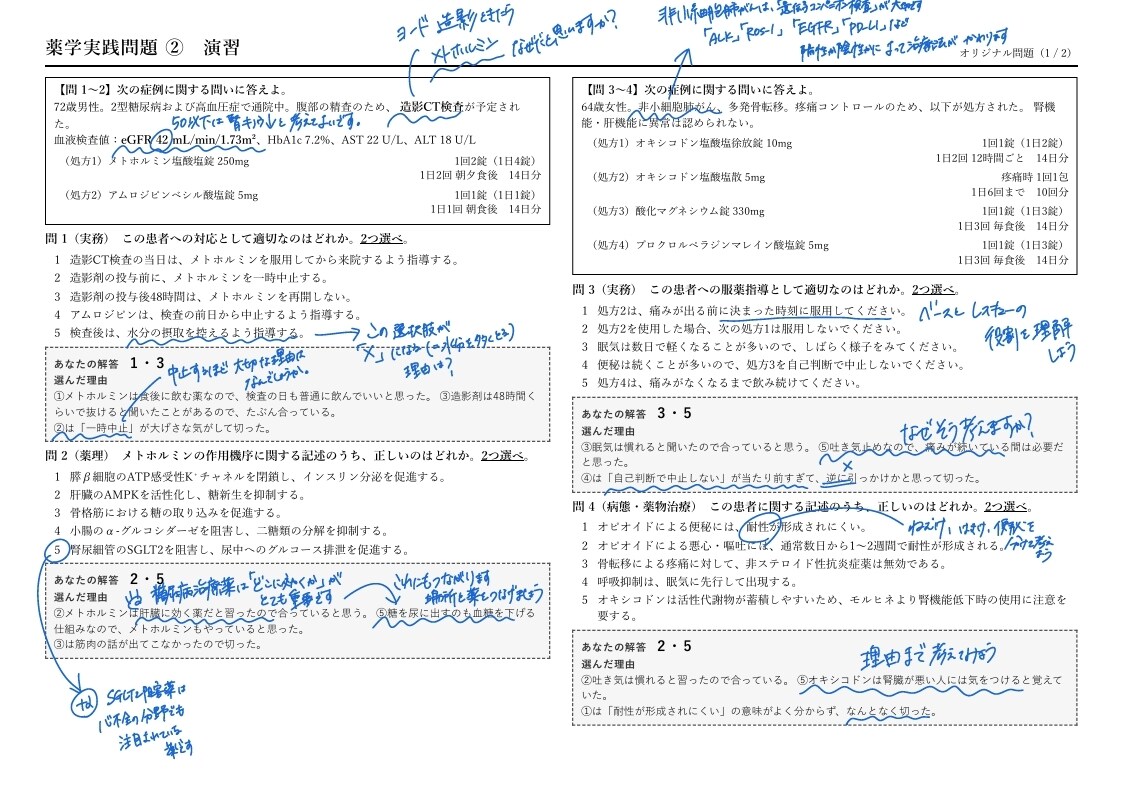 薬学実践問題 ② 演習
オリジナル問題（1 / 2）
ヨード造影ときたら
メトホルミン なぜだと思いますか？
非小細胞肺がんは、遺伝子コンパニオン検査が大切です
「ALK」「ROS-1」「EGFR」「PD-L1」など
陽性か陰性かによって治療法がかわります
【問 1〜2】次の症例に関する問いに答えよ。
72歳男性。2型糖尿病および高血圧症で通院中。腹部の精査のため、造影CT検査が予定され
た。
50以下は腎キノウ↓と考えてよいです。
血液検査値：eGFR 42 mL/min/1.73m²、HbA1c 7.2%、AST 22 U/L、ALT 18 U/L
（処方1）メトホルミン塩酸塩錠 250mg 1回2錠（1日4錠）
1日2回 朝夕食後 14日分
（処方2）アムロジピンベシル酸塩錠 5mg 1回1錠（1日1錠）
1日1回 朝食後 14日分
問 1（実務） この患者への対応として適切なのはどれか。2つ選べ。
1 造影CT検査の当日は、メトホルミンを服用してから来院するよう指導する。
2 造影剤の投与前に、メトホルミンを一時中止する。
3 造影剤の投与後48時間は、メトホルミンを再開しない。
4 アムロジピンは、検査の前日から中止するよう指導する。
5 検査後は、水分の摂取を控えるよう指導する。
この選択肢が
「×」になる(＝水分を多くとる)
理由は？
あなたの解答 1・3
中止するほど大切な理由は
なんでしょうか。
選んだ理由
①メトホルミンは食後に飲む薬なので、検査の日も普通に飲んでいいと思った。 ③造影剤は48時間く
らいで抜けると聞いたことがあるので、たぶん合っている。
②は「一時中止」が大げさな気がして切った。
問 2（薬理） メトホルミンの作用機序に関する記述のうち、正しいのはどれか。2つ選べ。
1 膵β細胞のATP感受性K⁺チャネルを閉鎖し、インスリン分泌を促進する。
2 肝臓のAMPKを活性化し、糖新生を抑制する。
3 骨格筋における糖の取り込みを促進する。
4 小腸のα-グルコシダーゼを阻害し、二糖類の分解を抑制する。
5 腎尿細管のSGLT2を阻害し、尿中へのグルコース排泄を促進する。
あなたの解答 2・5
糖尿病治療薬は「どこに効くか」が
とても重要です
これにもつながります
場所と薬をつなげましょう
選んだ理由
②メトホルミンは肝臓に効く薬だと習ったので合っていると思う。 ⑤糖を尿に出すのも血糖を下げる
仕組みなので、メトホルミンもやっていると思った。
③は筋肉の話が出てこなかったので切った。
+α
SGLT2阻害薬は
心不全の分野でも
注目されている
薬です
【問 3〜4】次の症例に関する問いに答えよ。
64歳女性。非小細胞肺がん、多発骨転移。疼痛コントロールのため、以下が処方された。 腎機
能・肝機能に異常は認められない。
（処方1）オキシコドン塩酸塩徐放錠 10mg 1回1錠（1日2錠）
1日2回 12時間ごと 14日分
（処方2）オキシコドン塩酸塩散 5mg 疼痛時 1回1包
1日6回まで 10回分
（処方3）酸化マグネシウム錠 330mg 1回1錠（1日3錠）
1日3回 毎食後 14日分
（処方4）プロクロルペラジンマレイン酸塩錠 5mg 1回1錠（1日3錠）
1日3回 毎食後 14日分
問 3（実務） この患者への服薬指導として適切なのはどれか。2つ選べ。
1 処方2は、痛みが出る前に決まった時刻に服用してください。
2 処方2を使用した場合、次の処方1は服用しないでください。
3 眠気は数日で軽くなることが多いので、しばらく様子をみてください。
4 便秘は続くことが多いので、処方3を自己判断で中止しないでください。
5 処方4は、痛みがなくなるまで飲み続けてください。
ベースとレスキューの
役割を理解
しよう
あなたの解答 3・5
なぜそう考えますか？
選んだ理由
③眠気は慣れると聞いたので合っていると思う。 ⑤吐き気止めなので、痛みが続いている間は必要だ
と思った。
×
④は「自己判断で中止しない」が当たり前すぎて、逆に引っかけかと思って切った。
問 4（病態・薬物治療） この患者に関する記述のうち、正しいのはどれか。2つ選べ。
1 オピオイドによる便秘には、耐性が形成されにくい。
2 オピオイドによる悪心・嘔吐には、通常数日から1〜2週間で耐性が形成される。
3 骨転移による疼痛に対して、非ステロイド性抗炎症薬は無効である。
4 呼吸抑制は、眠気に先行して出現する。
5 オキシコドンは活性代謝物が蓄積しやすいため、モルヒネより腎機能低下時の使用に注意を
要する。
ねむけ、はきけ、便秘を
分けて考え
よう
あなたの解答 2・5
理由まで考えてみよう
選んだ理由
②吐き気は慣れると習ったので合っている。 ⑤オキシコドンは腎臓が悪い人には気をつけると覚えて
いた。
①は「耐性が形成されにくい」の意味がよく分からず、なんとなく切った。